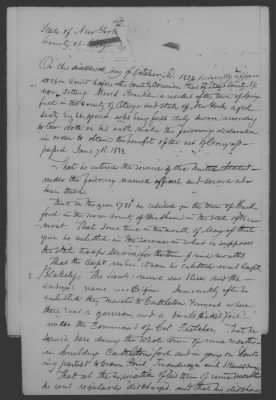 State of New York
County of Otsego } SS
On this day of October A.D. 1832 personally appeared
in open Court before the Court of Common Pleas of Otsego County
now sitting Franklin a resident of the town of Spring
field in the County of Otsego and State of New York aged
Sixty eight years who being first duly sworn according
to law doth on his oath make the following declaration
in order to obtain the benefit of the act of Congress
passed June 7th 1832.
That he entered the service of the United States
under the following named officers and served as
here stated.
That in the year 1781 he resided in the town of Guil
ford in the now county of Windham in the State of Ver-
mont That some time in the month of of that
year he enlisted in the service in what he supposes
the State troops service for the term of nine months
That the Capt. whom he enlisted was Capt
Blakely, The Lieut's name was and the
ensign's name was Immediately after he
enlisted they marched to Castleton Vermont where
there was a garrison and a fort
under the Command of Col Fletcher That he
served there during the whole term of nine months
in building Castleton fort and in going on Scouts
in parties to Crown Point Ticonderoga and
That at the expiration of his term of nine months
he was regularly discharged, and that his discharge